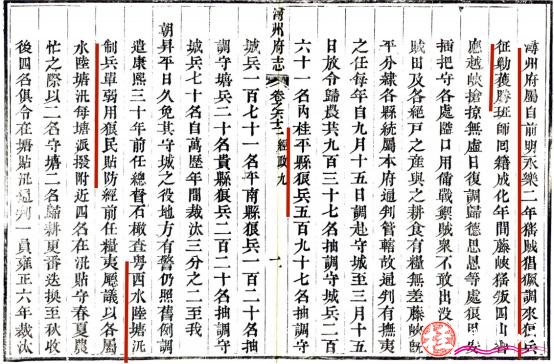 潯州府屬自前明永樂二年猺賊猖獗調永狼兵
征勦獲勝班師回籍成化年間藤峽猺叛因山
應越峽搶掠無虛日復調歸德思恩等處狼
插把守各處隘口用備戰禦賊衆不敢出没
賊田及各絕戶之産與之耕食有糧無差藤峽
平分隸各縣統屬本府通判管轄故通判有撫夷
之任每年自九月十五日調赴守城至三月十五
日放令歸農共九百三十七名抽調守城兵二百
六十一名内桂平縣狼兵五百九十七名抽調守
潯州府志 經政九 一
城兵一百七十一名平南縣狼兵一百二十名抽
調守塘兵二十名貴縣狼兵二百二十名抽調守
城兵七十名自萬歷年間裁汰三分之二至我
朝昇平日久免其守城之役地方有警仍照舊例調
遣康熙三十年前任總督石檄查粤西水陸塘汛
制兵單弱用狼民貼防經前任糧夷廳議以各屬
水陸塘汛每塘派撥附近四名在汛貼守春夏農
忙之際以二名守塘二名歸耕更番迭換至秋收
後四名俱令在塘貼汛通判一員雍正六年裁汰